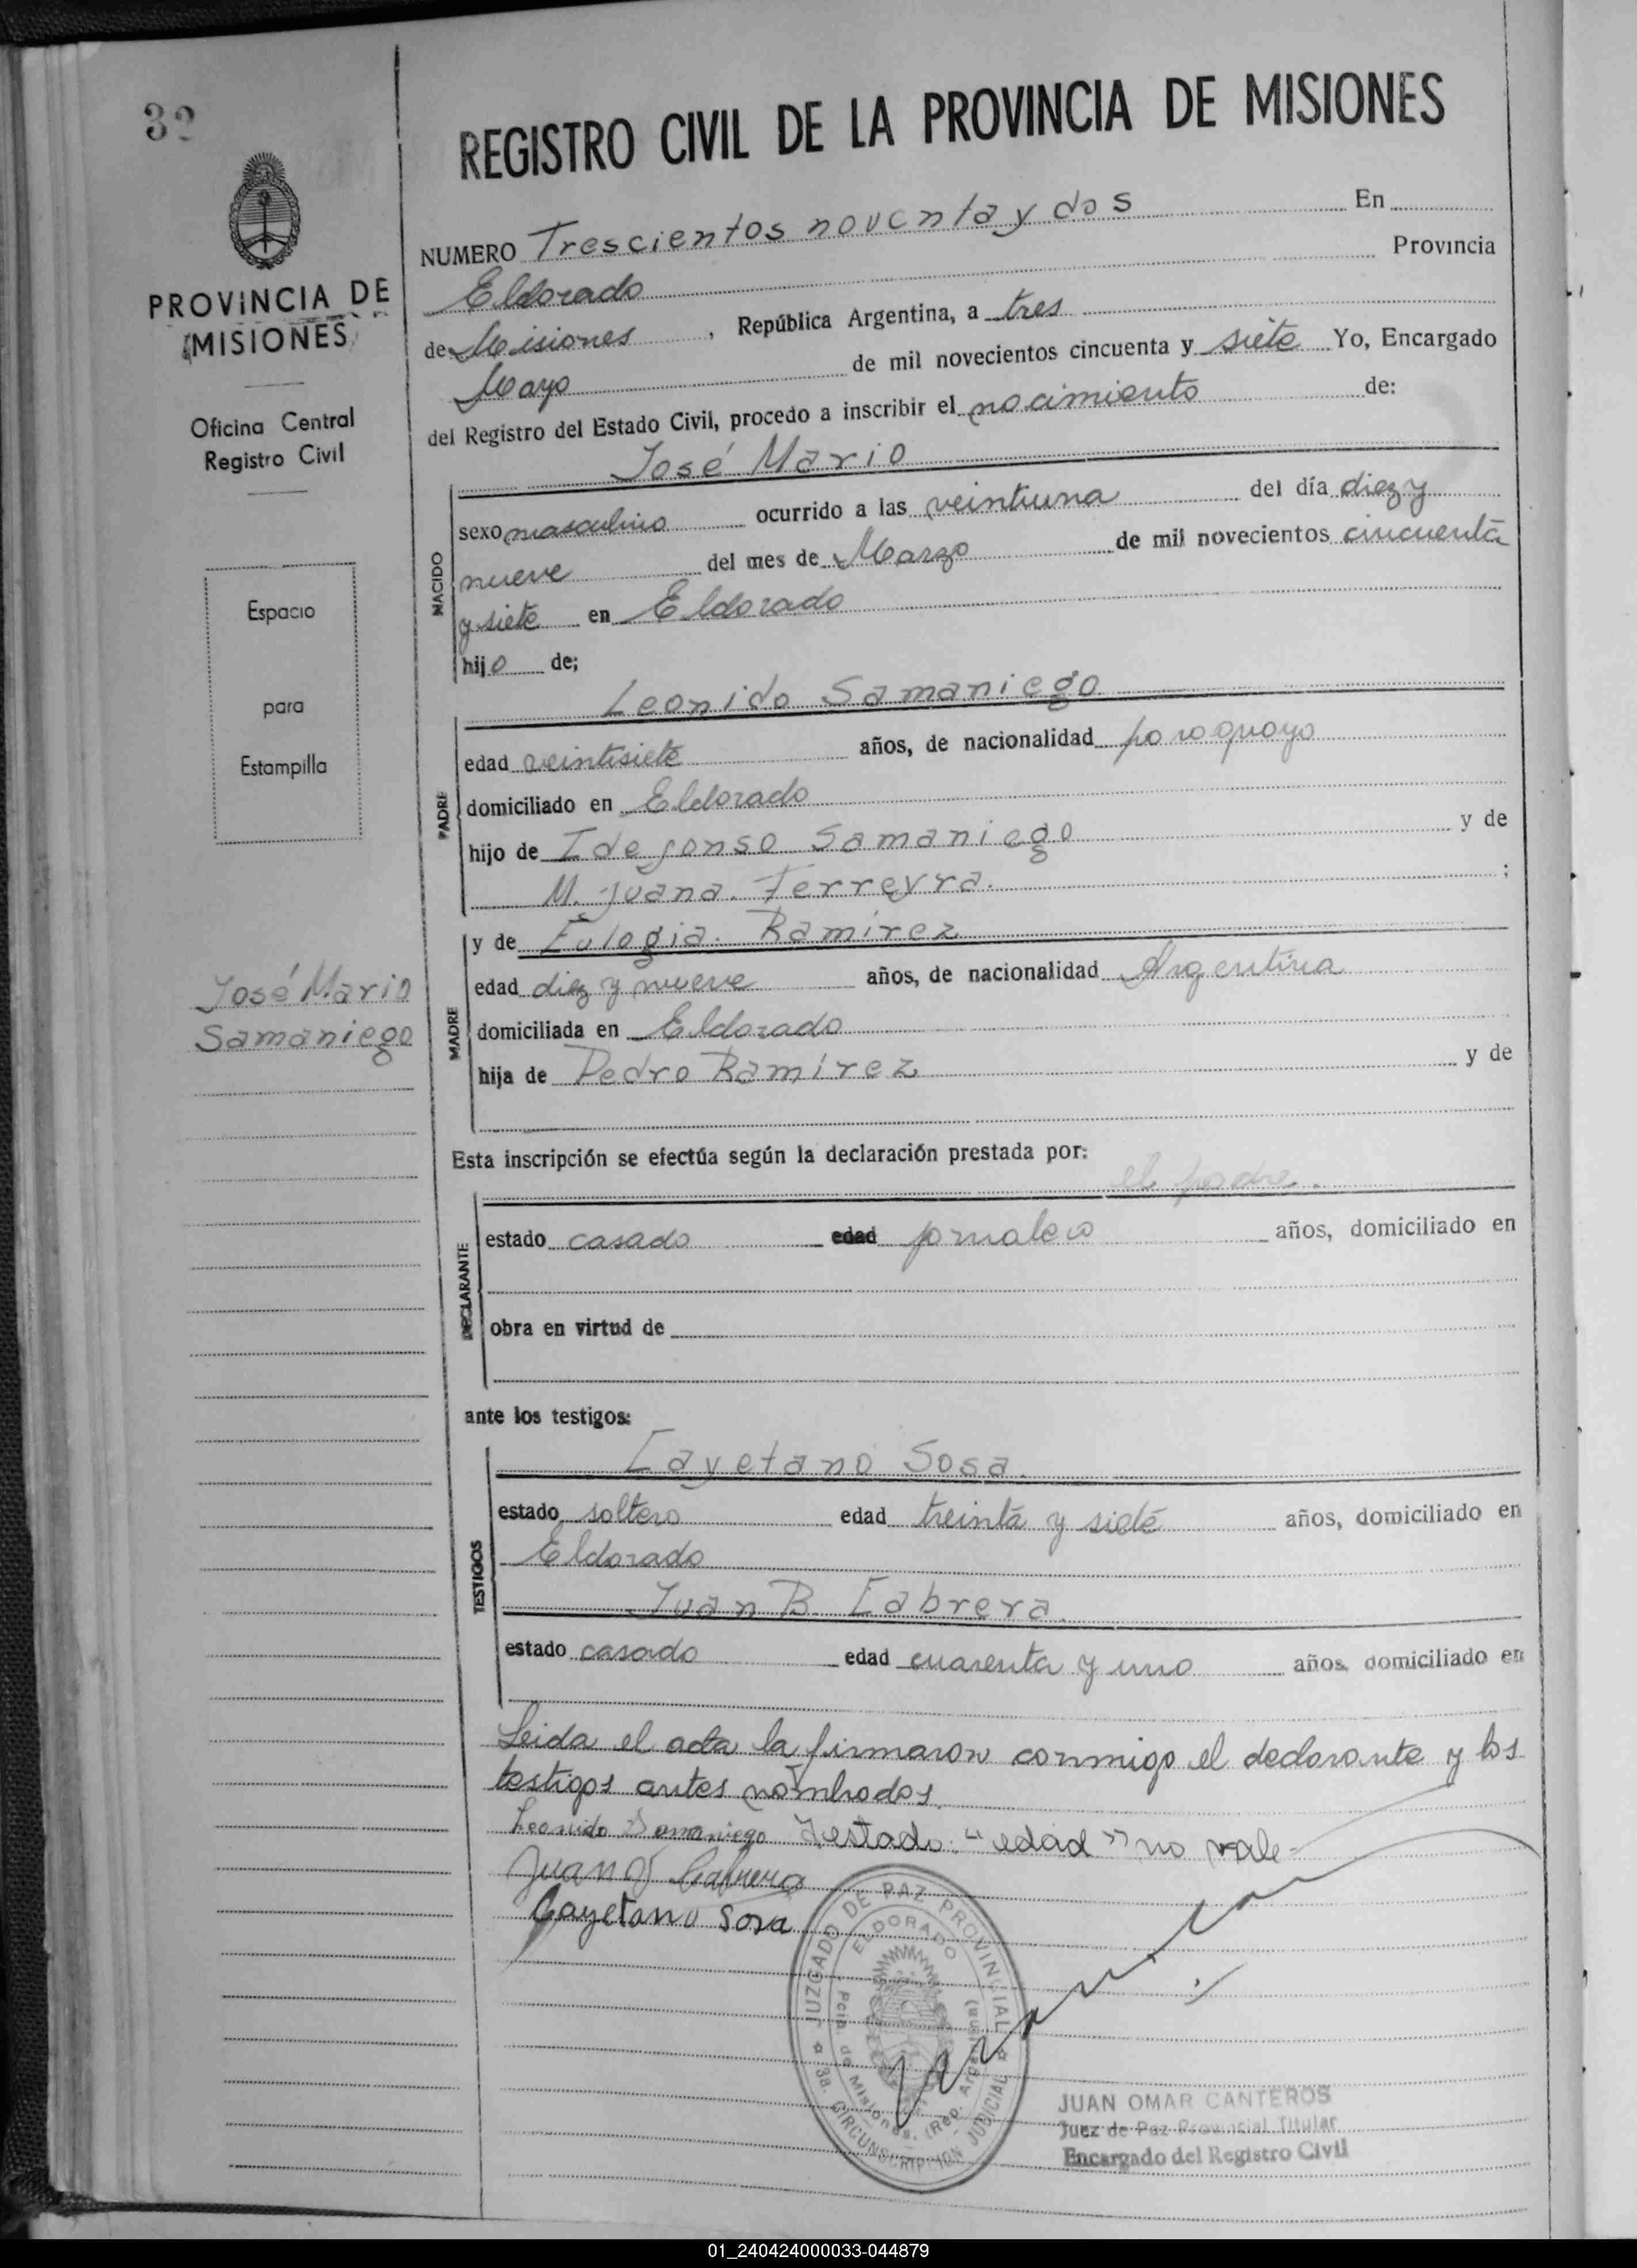 32
PROVINCIA DE
MISIONES
Oficina Central
Registro Civil
Espacio
para
Estampilla
José Mario
Samaniego
REGISTRO CIVIL DE LA PROVINCIA DE MISIONES
NUMERO Trescientos noventa y dos En
Eldorado Provincia
de Misiones, República Argentina, a tres
Mayo de mil novecientos cincuenta y siete Yo, Encargado
del Registro del Estado Civil, procedo a inscribir el nacimiento de:
José Mario
NACIDO
sexo masculino ocurrido a las veintiuna del día diez y
nueve del mes de Marzo de mil novecientos cincuenta
y siete en Eldorado
hijo de;
Leonido Samaniego
PADRE
edad veintisiete años, de nacionalidad paraguayo
domiciliado en Eldorado
hijo de Idefonso Samaniego y de
M. Juana Ferreyra. ;
MADRE
y de Eulogia Ramírez
edad diez y nueve años, de nacionalidad Argentina
domiciliada en Eldorado
hija de Pedro Ramírez y de
Esta inscripción se efectúa según la declaración prestada por:
el padre.
DECLARANTE
estado casado edad jornalero años, domiciliado en
obra en virtud de
ante los testigos:
Cayetano Sosa.
TESTIGOS
estado soltero edad treinta y siete años, domiciliado en
Eldorado
Juan B. Cabrera.
estado casado edad cuarenta y uno años, domiciliado en
Leida el acta la firmaron conmigo el declarante y los
testigos antes nombrados.
Leonido Samaniego Testado: "edad" no vale-
Juan B Cabrera
Cayetano Sosa
JUZGADO DE PAZ PROVINCIAL
ELDORADO
Pcia. de Misiones. (Rep. Argentina)
3a. CIRCUNSCRIPCION JUDICIAL
JUAN OMAR CANTEROS
Juez de Paz Provincial Titular
Encargado del Registro Civil
01_240424000033-044879